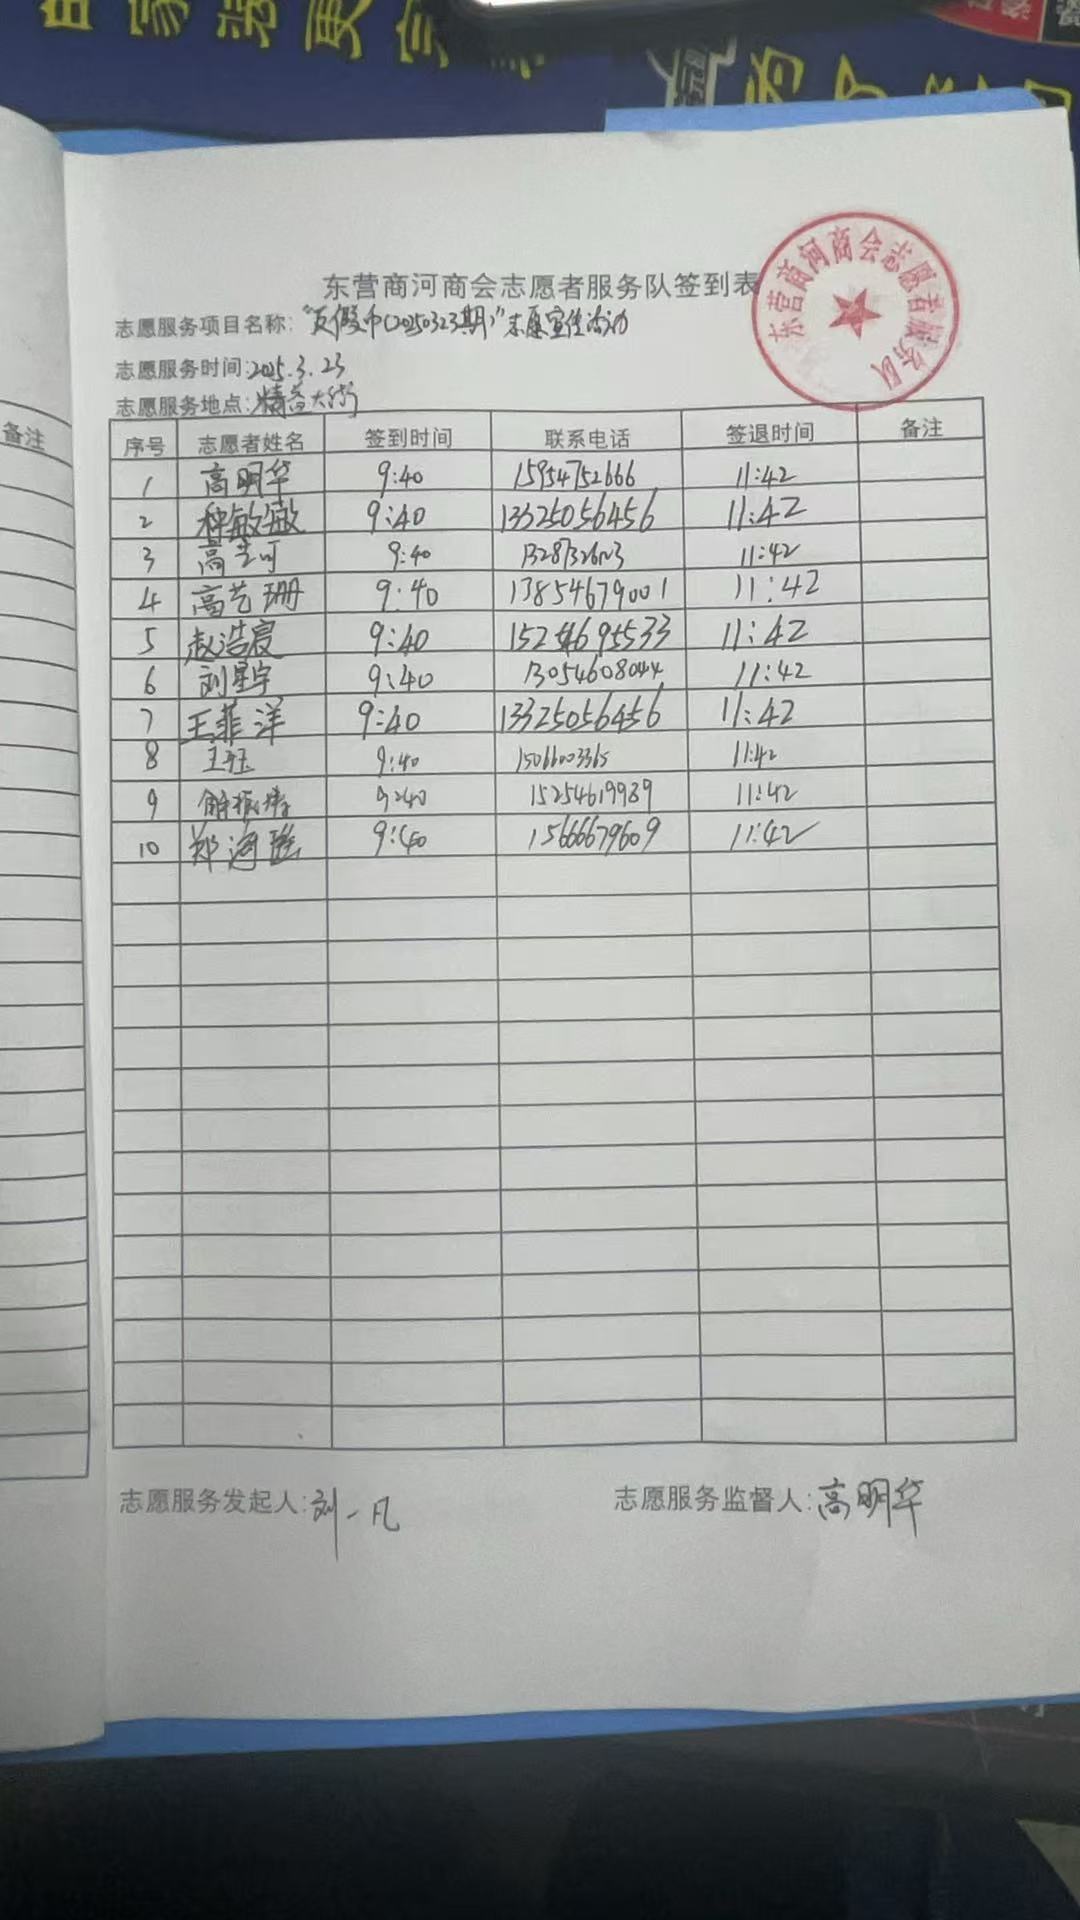 备注
东营商河商会志愿者服务队签到表
东营商河商会志愿者服务队
志愿服务项目名称:“反假币(20250323期)”志愿宣传活动
志愿服务时间:2025.3.23
志愿服务地点:精益大街
序号 志愿者姓名 签到时间 联系电话 签退时间 备注
1 高明华 9:40 15954752666 11:42
2 种敏敏 9:40 13325056456 11:42
3 高艺可 9:40 11:42
4 高艺珊 9:40 13854679001 11:42
5 赵浩宸 9:40 15254695533 11:42
6 刘星宇 9:40 13054608044 11:42
7 王菲洋 9:40 13325056456 11:42
8 王珏 9:40 15066003365 11:42
9 9:40 15254619989 11:42
10 郑海 9:40 15666679609 11:42
志愿服务发起人:刘一凡 志愿服务监督人:高明华